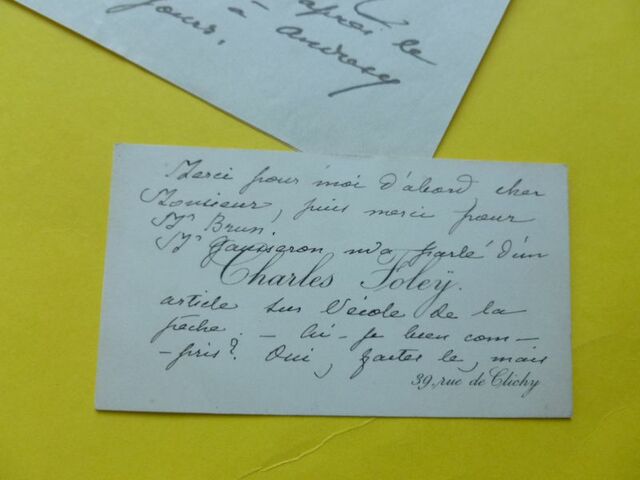 après le
à Andresy
jours.
Merci pour moi d'abord cher
Monsieur, puis merci pour
Mr Brun.
Mr Gausseron m'a parlé d'un
Charles Foleÿ.
article sur l'école de la
pêche. - Ai-je bien com-
-pris? Oui, faites le, mais
39, rue de Clichy